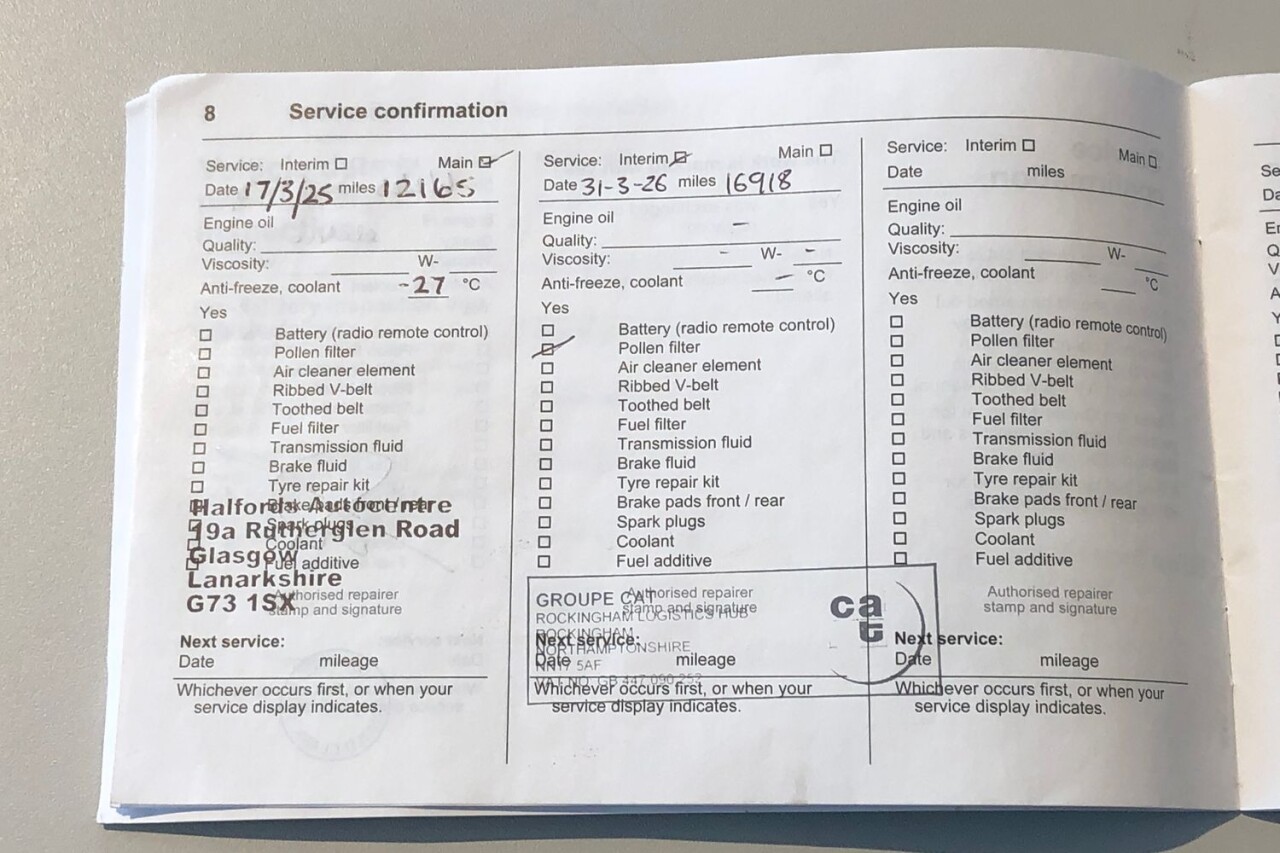 8 Service confirmation
Service: Interim Main
Date 17/3/25 miles 12165
Engine oil
Quality:
Viscosity: W-
Anti-freeze, coolant -27 °C
Yes
Battery (radio remote control)
Pollen filter
Air cleaner element
Ribbed V-belt
Toothed belt
Fuel filter
Transmission fluid
Brake fluid
Tyre repair kit
Brake pads front / rear
Spark plugs
Coolant
Fuel additive
Halfords Autocentre
19a Rutherglen Road
Glasgow
Lanarkshire
G73 1SX
Authorised repairer
stamp and signature
Next service:
Date mileage
Whichever occurs first, or when your
service display indicates.
Service: Interim Main
Date 31-3-26 miles 16918
Engine oil
Quality: -
Viscosity: - W- -
Anti-freeze, coolant - °C
Yes
Battery (radio remote control)
Pollen filter
Air cleaner element
Ribbed V-belt
Toothed belt
Fuel filter
Transmission fluid
Brake fluid
Tyre repair kit
Brake pads front / rear
Spark plugs
Coolant
Fuel additive
Authorised repairer
stamp and signature
GROUPE CAT
ROCKINGHAM LOGISTICS HUB
ROCKINGHAM
NORTHAMPTONSHIRE
NN17 5AF
VAT NO. GB 447 090 252
cat
Next service:
Date mileage
Whichever occurs first, or when your
service display indicates.
Service: Interim Main
Date miles
Engine oil
Quality:
Viscosity: W-
Anti-freeze, coolant °C
Yes
Battery (radio remote control)
Pollen filter
Air cleaner element
Ribbed V-belt
Toothed belt
Fuel filter
Transmission fluid
Brake fluid
Tyre repair kit
Brake pads front / rear
Spark plugs
Coolant
Fuel additive
Authorised repairer
stamp and signature
Next service:
Date mileage
Whichever occurs first, or when your
service display indicates.